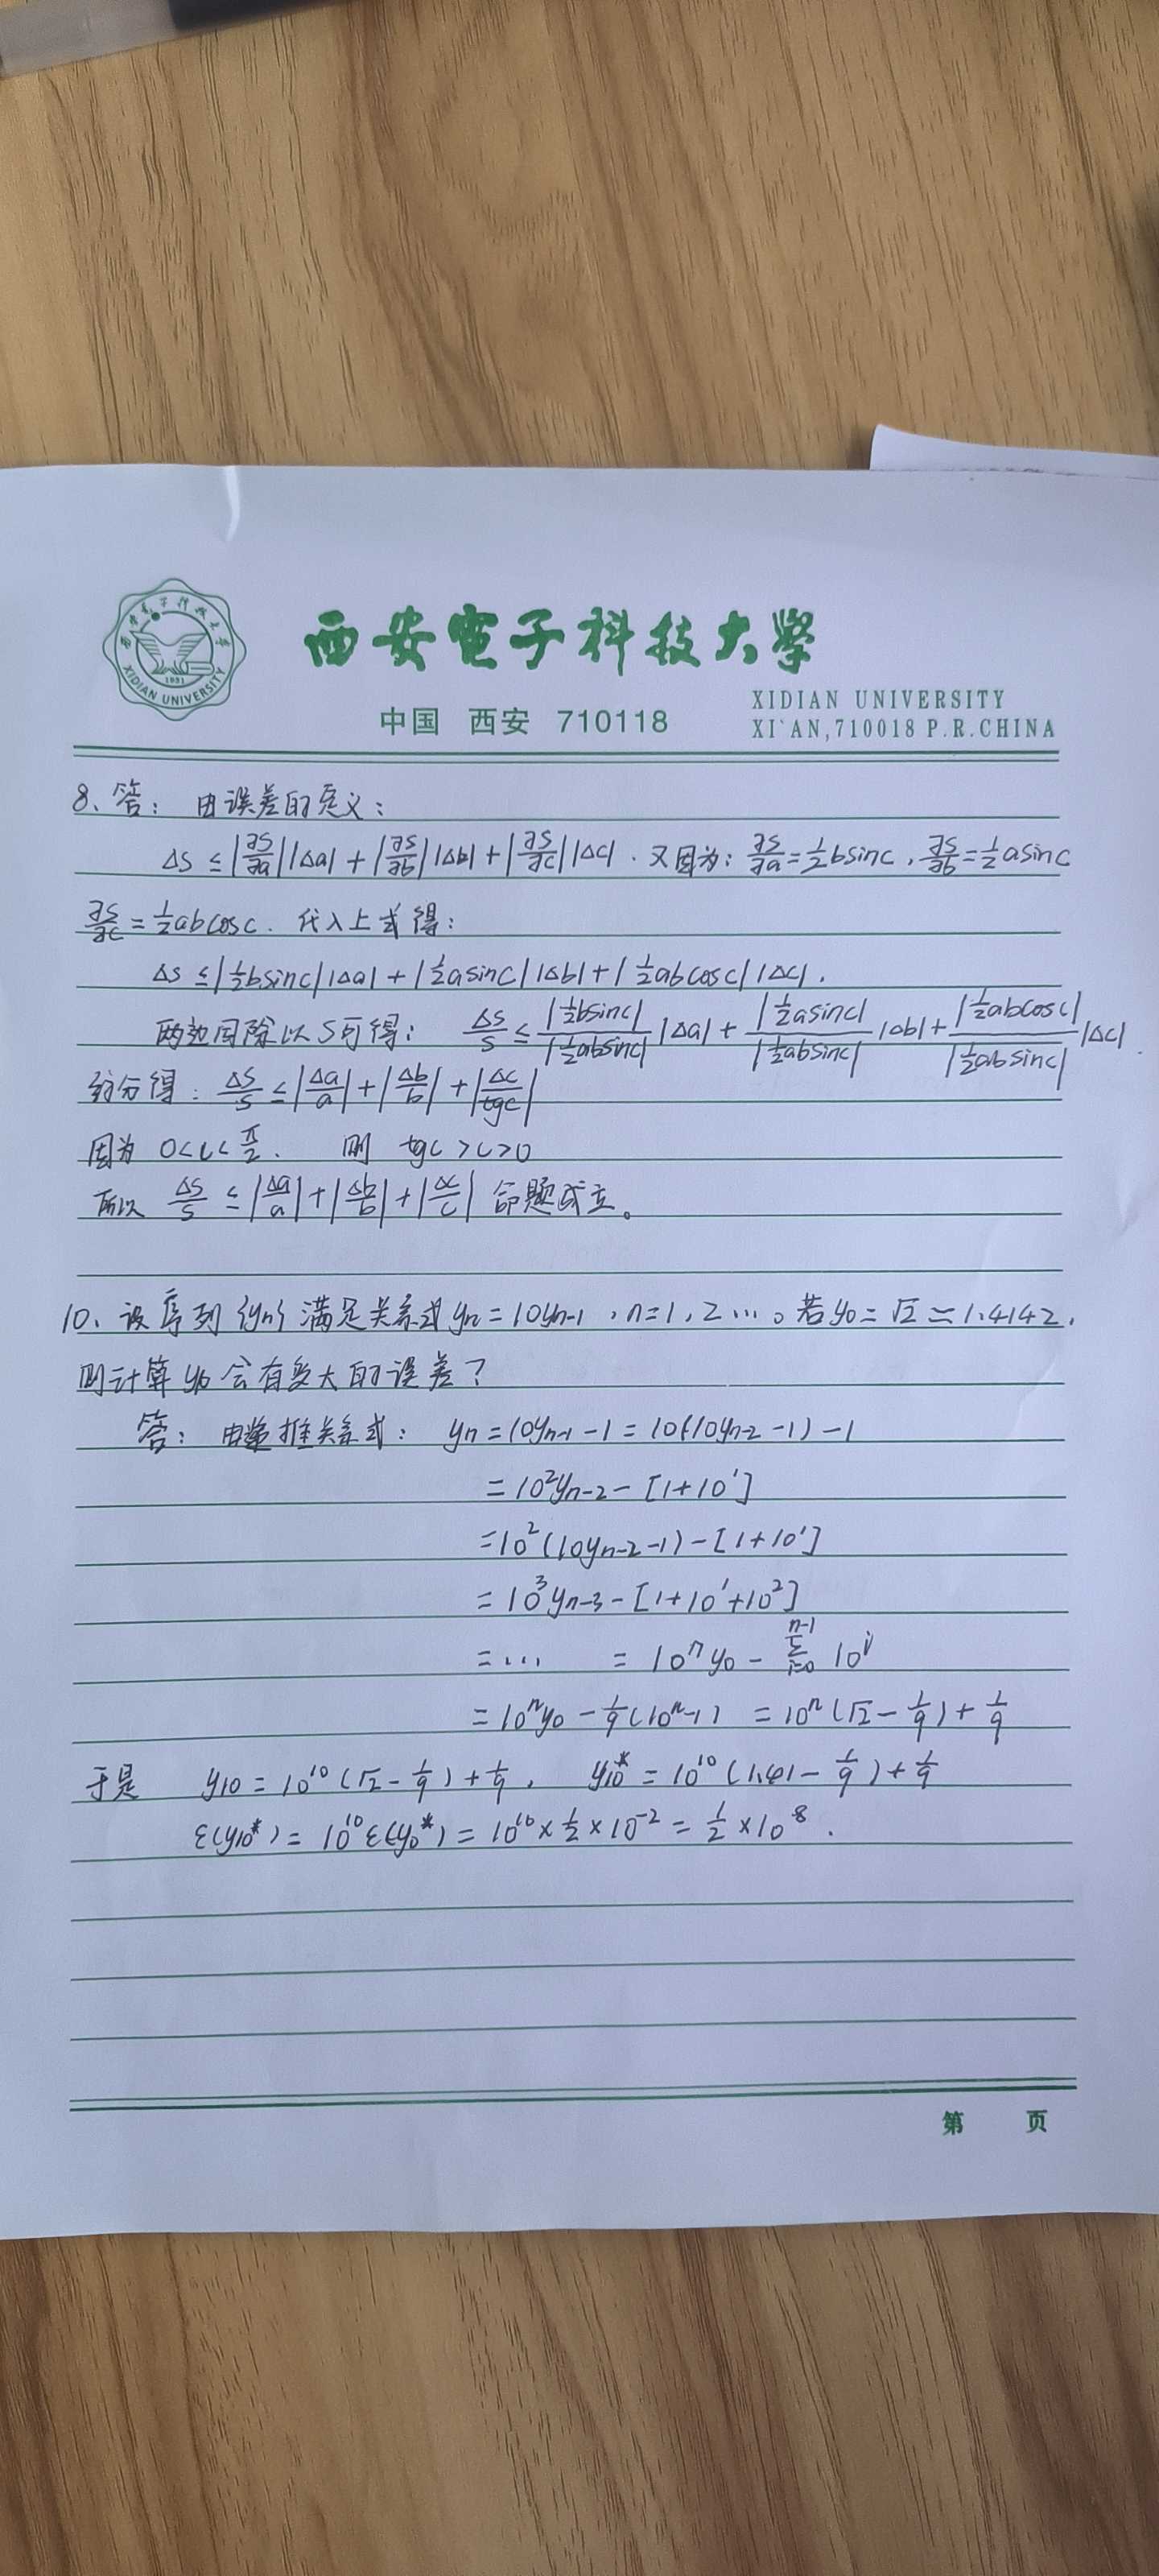 西安電子科技大學
XIDIAN UNIVERSITY
1931
中国 西安 710118
XIDIAN UNIVERSITY
XI`AN,710018 P.R.CHINA
8、答: 由误差的定义:
ΔS ≤ |∂S/∂a| |Δa| + |∂S/∂b| |Δb| + |∂S/∂c| |Δc| . 又因为: ∂S/∂a = 1/2 bsinc , ∂S/∂b = 1/2 asinc
∂S/∂c = 1/2 abcosc. 代入上式得:
Δs ≤ |1/2 bsinc| |Δa| + |1/2 asinc| |Δb| + |1/2 abcosc| |Δc| .
两边同除以S可得: ΔS/S ≤ |1/2 bsinc|/|1/2 absinc| |Δa| + |1/2 asinc|/|1/2 absinc| |Δb| + |1/2 abcosc|/|1/2 absinc| |Δc| .
约分得: ΔS/S ≤ |Δa/a| + |Δb/b| + |Δc/tgc|
因为 0<c<π/2 . 则 tgc >c>0
所以 ΔS/S ≤ |Δa/a| + |Δb/b| + |Δc/c| 命题成立。
10、设序列{yn}满足关系式yn=10yn-1 , n=1, 2 …。若y0=√2≈1.4142,
则计算y10会有多大的误差?
答: 由递推关系式: yn=10yn-1 -1 = 10(10yn-2 -1) -1
= 10²yn-2 - [1+10¹]
=10²(10yn-2 -1) - [1+10¹]
= 10³yn-3 - [1+10¹+10²]
= … = 10ⁿy0 - Σ(i=0, n-1) 10ⁱ
= 10ⁿy0 - 1/9 (10ⁿ-1) = 10ⁿ(√2 - 1/9) + 1/9
于是 y10 = 10¹⁰(√2 - 1/9) + 1/9 , y10* = 10¹⁰(1.41 - 1/9) + 1/9
ε(y10*) = 10¹⁰ε(y0*) = 10¹⁰ × 1/2 × 10⁻² = 1/2 × 10⁸ .
第 页